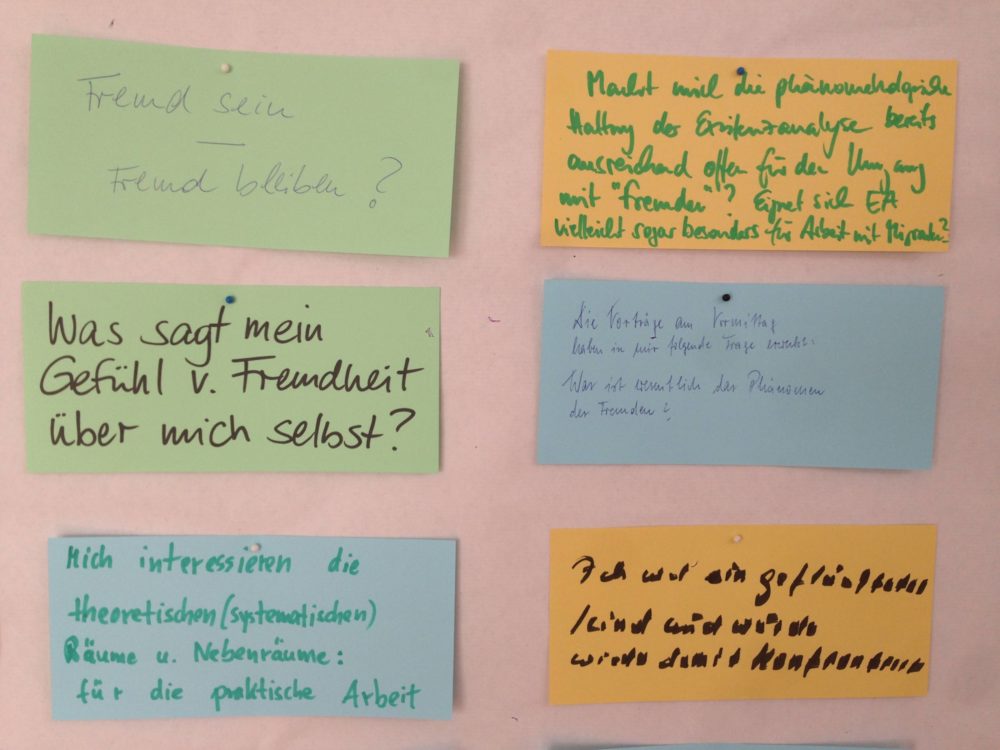 Fremd sein
—
Fremd bleiben?
Macht mich die phänomenologische
Haltung der Existenzanalyse bereits
ausreichend offen für den Umgang
mit "Fremden"? Eignet sich EA
vielleicht sogar besonders für Arbeit mit Migranten?
Was sagt mein
Gefühl v. Fremdheit
über mich selbst?
Die Vorträge am Vormittag
haben in mir folgende Frage erweckt:
Was ist wesentlich das Phänomen
der Fremden?
Mich interessieren die
theoretischen (systematischen)
Räume u. Nebenräume:
für die praktische Arbeit
Ich war ein geflüchtetes
Kind und würde
damit